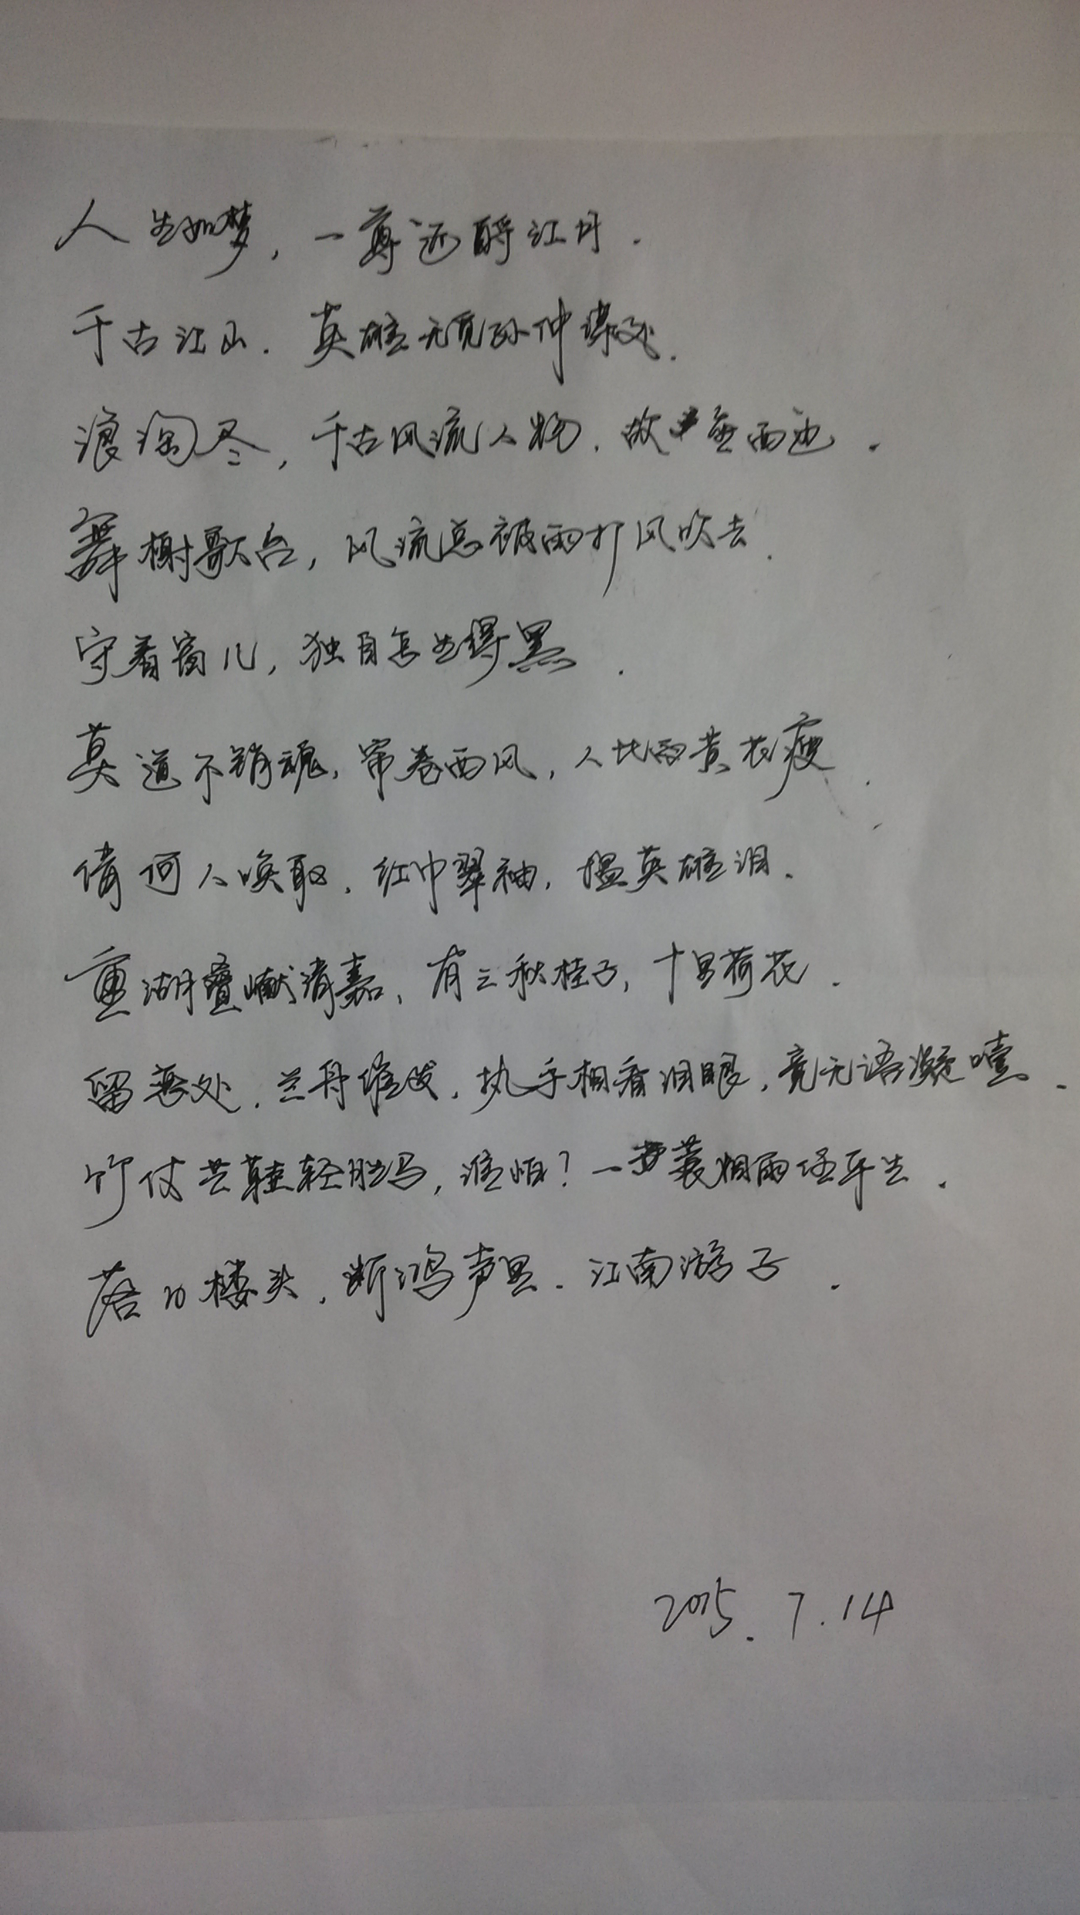 人生如梦，一尊还酹江月．
千古江山．英雄无觅孙仲谋处．
浪淘尽，千古风流人物．故垒西边．
舞榭歌台，风流总被雨打风吹去．
守着窗儿，独自怎生得黑．
莫道不销魂，帘卷西风，人比西黄花瘦．
倩何人唤取．红巾翠袖，揾英雄泪．
重湖叠巘清嘉，有三秋桂子，十里荷花．
留恋处．兰舟催发，执手相看泪眼，竟无语凝噎．
竹仗芒鞋轻胜马，谁怕？一蓑烟雨任平生．
落日楼头，断鸿声里．江南游子．
2015.7.14